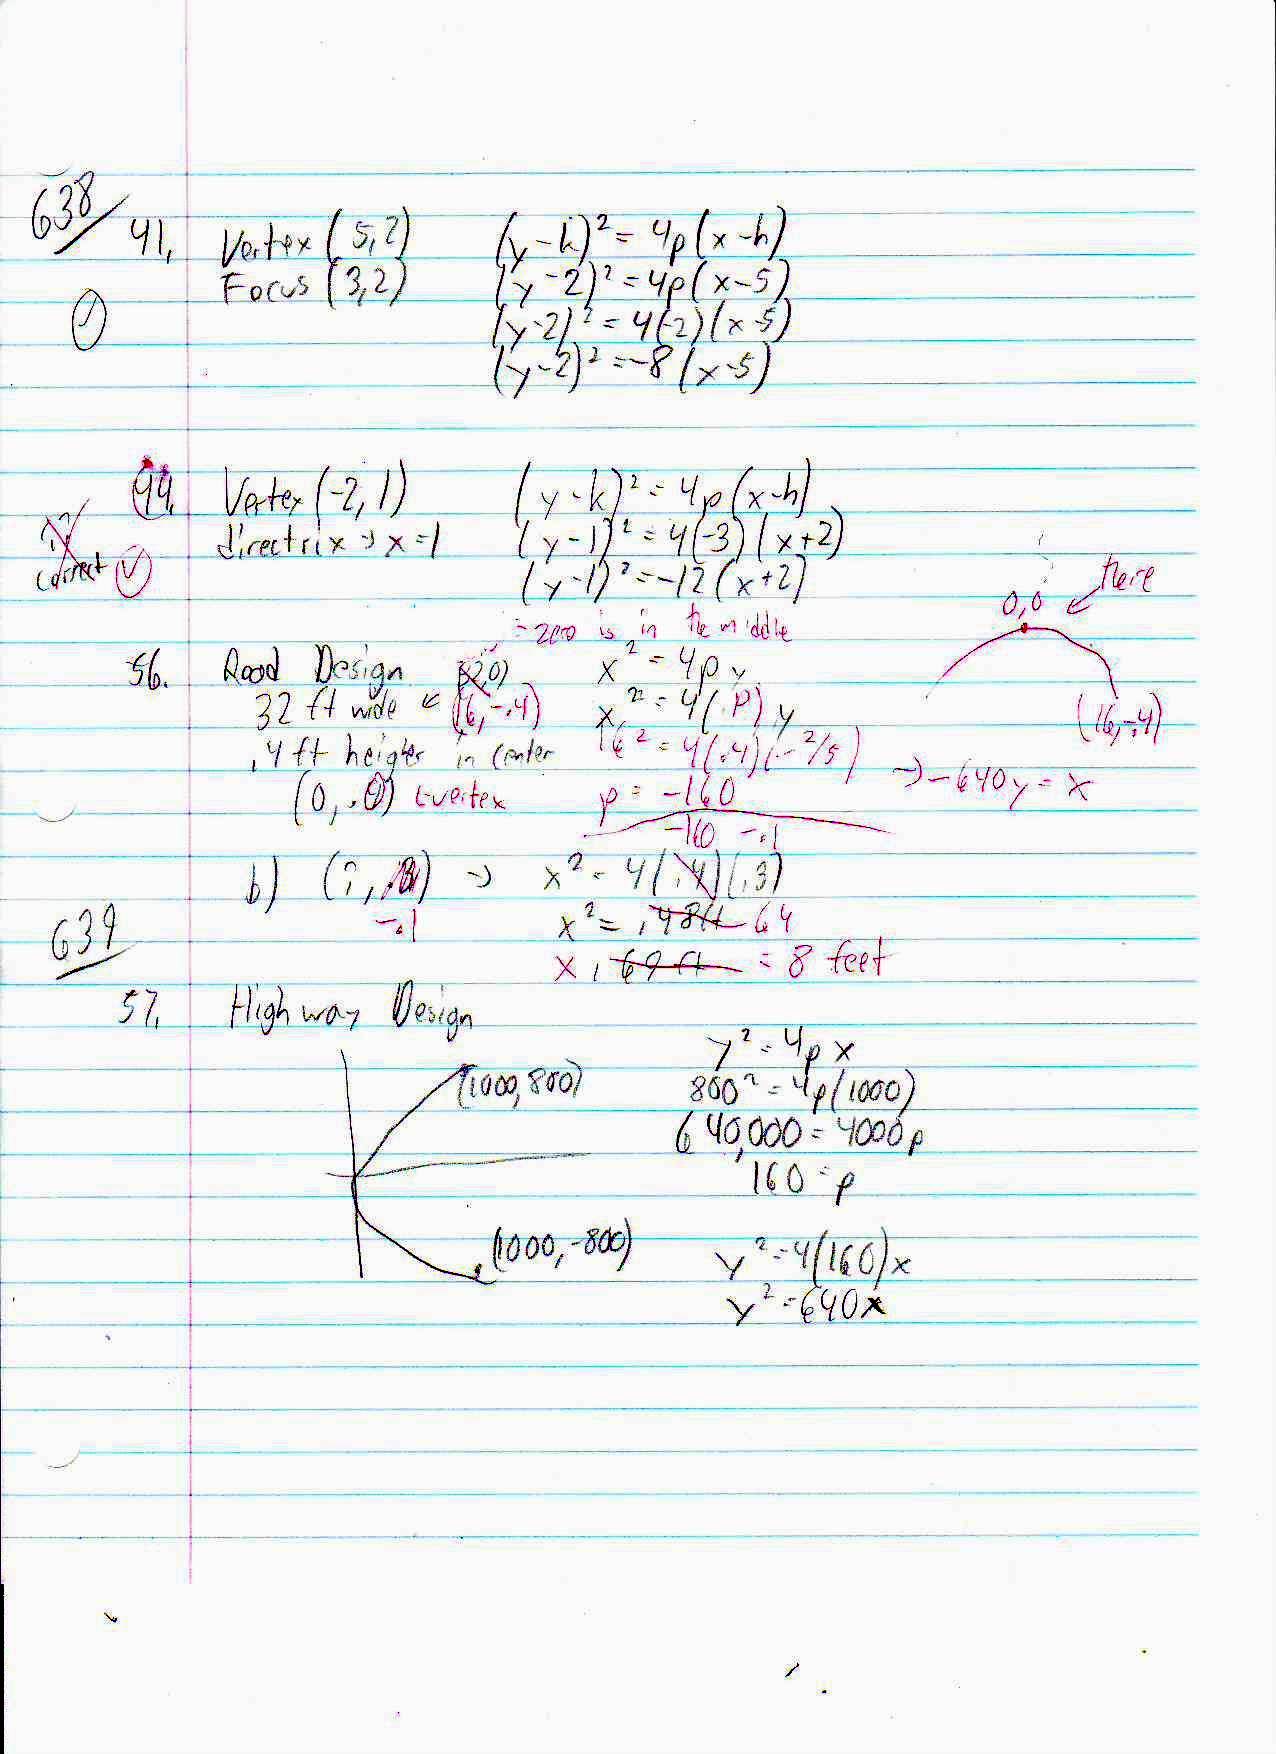 638/
41. Vertex (5,2) (y-k)² = 4p(x-h)
Focus (3,2) (y-2)² = 4p(x-5)
(y-2)² = 4(-2)(x-5)
(y-2)² = -8(x-5)
44. Vertex (-2,1) (y-k)² = 4p(x-h)
directrix → x=1 (y-1)² = 4(-3)(x+2)
correct (y-1)² = -12(x+2)
0,0 here
= zero is in the middle
56. Road Design x² = 4py
32 ft wide (16,-.4) x² = 4(.P)y
(16,-.4)
.4 ft heigter in center 16² = 4(.4)(-2/5) → -640y = x
(0,.0) ←vertex p = -160
-160 -.1
b) (?, ) → x² = 4(.4)(.3)
-.1
639
x² = .48ft 64
x .69 ft = 8 feet
57. Highway Design
y² = 4px
(1000,800) 800² = 4p(1000)
640,000 = 4000p
160 = p
(1000,-800) y² = 4(160)x
y² = 640x